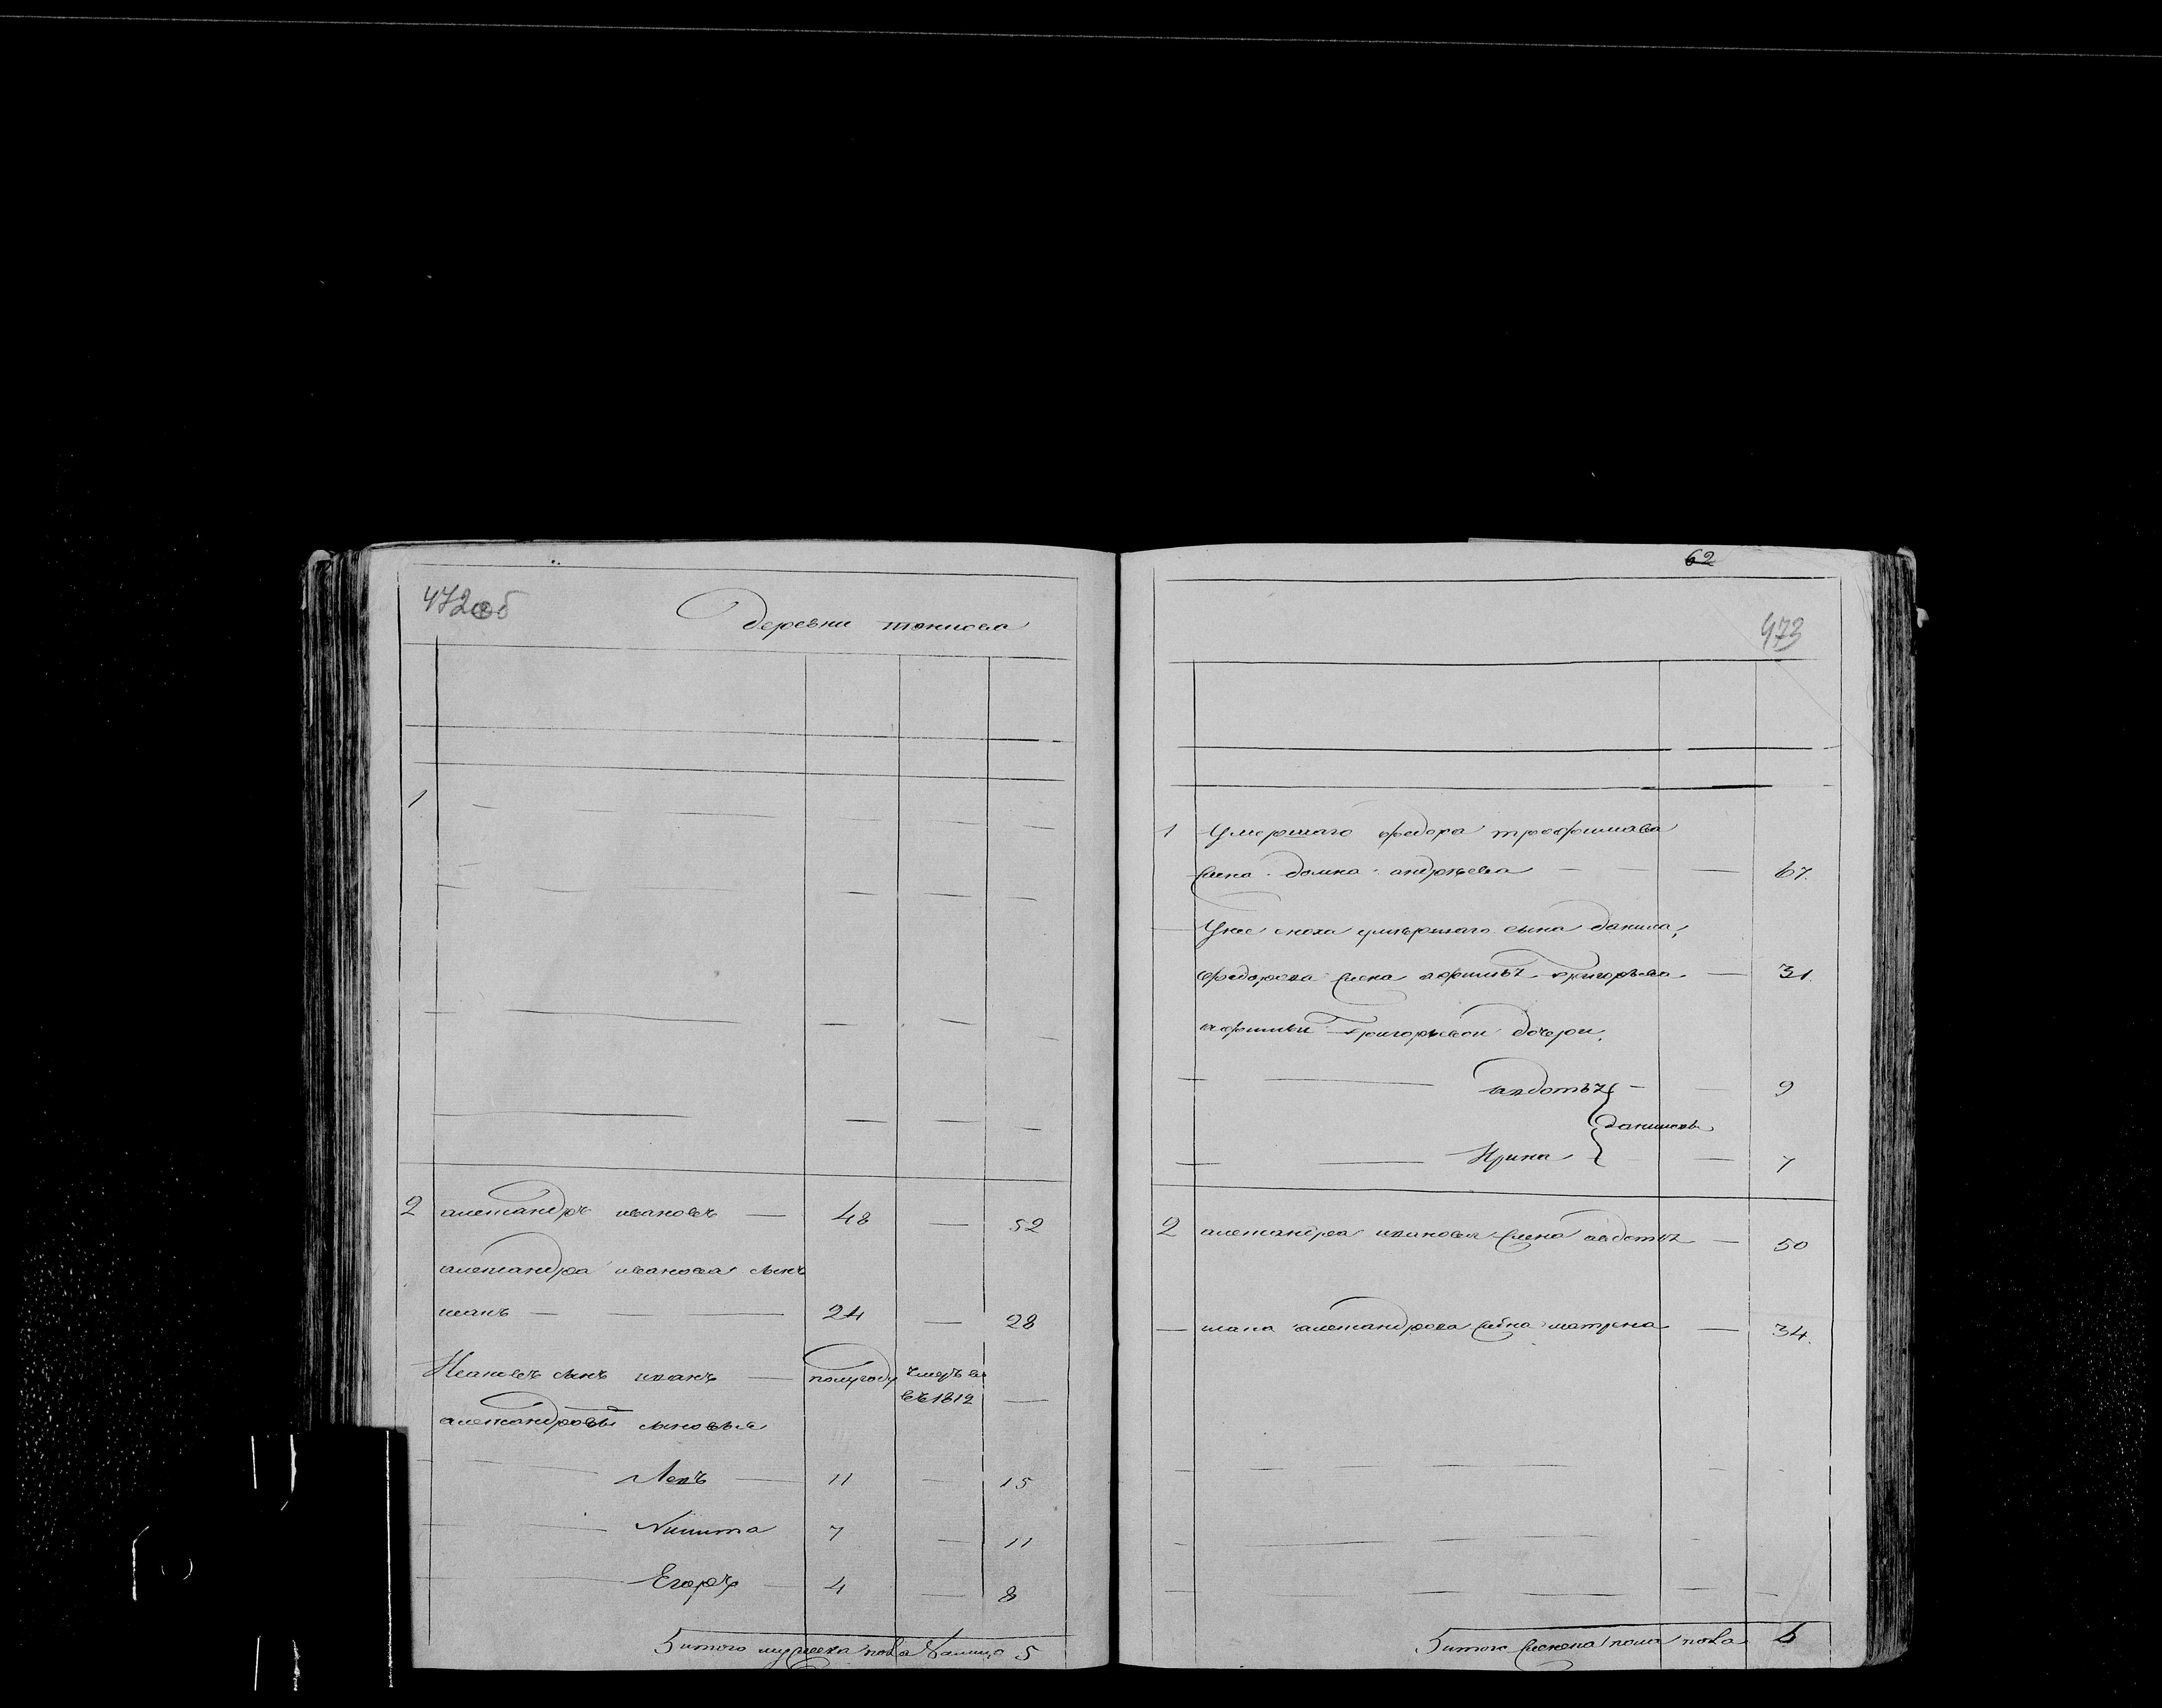 472об
Деревни
1
2 александръ ивановъ — 48 — 52
александра иванова сынъ
иванъ — 24 — 28
Ивановъ сынъ иванъ — полугоду умеръ въ 1812 —
александровы сыновья
Левъ — 11 — 15
Никита 7 — 11
Егоръ — 4 — 8
итого мужеска пола налицо 5
62
473
1 Умершаго федора трофимова
жена домна андреева — 67.
Унее сноха умершаго сына данила
федорова жена афимья григорьева — 31.
афимьи григорьевой дочери
авдотья — 9
даниловы
Ирина — 7
2 александра иванова жена авдотья — 50
— ивана александрова жена матрена — 34.
итого женска пола 6